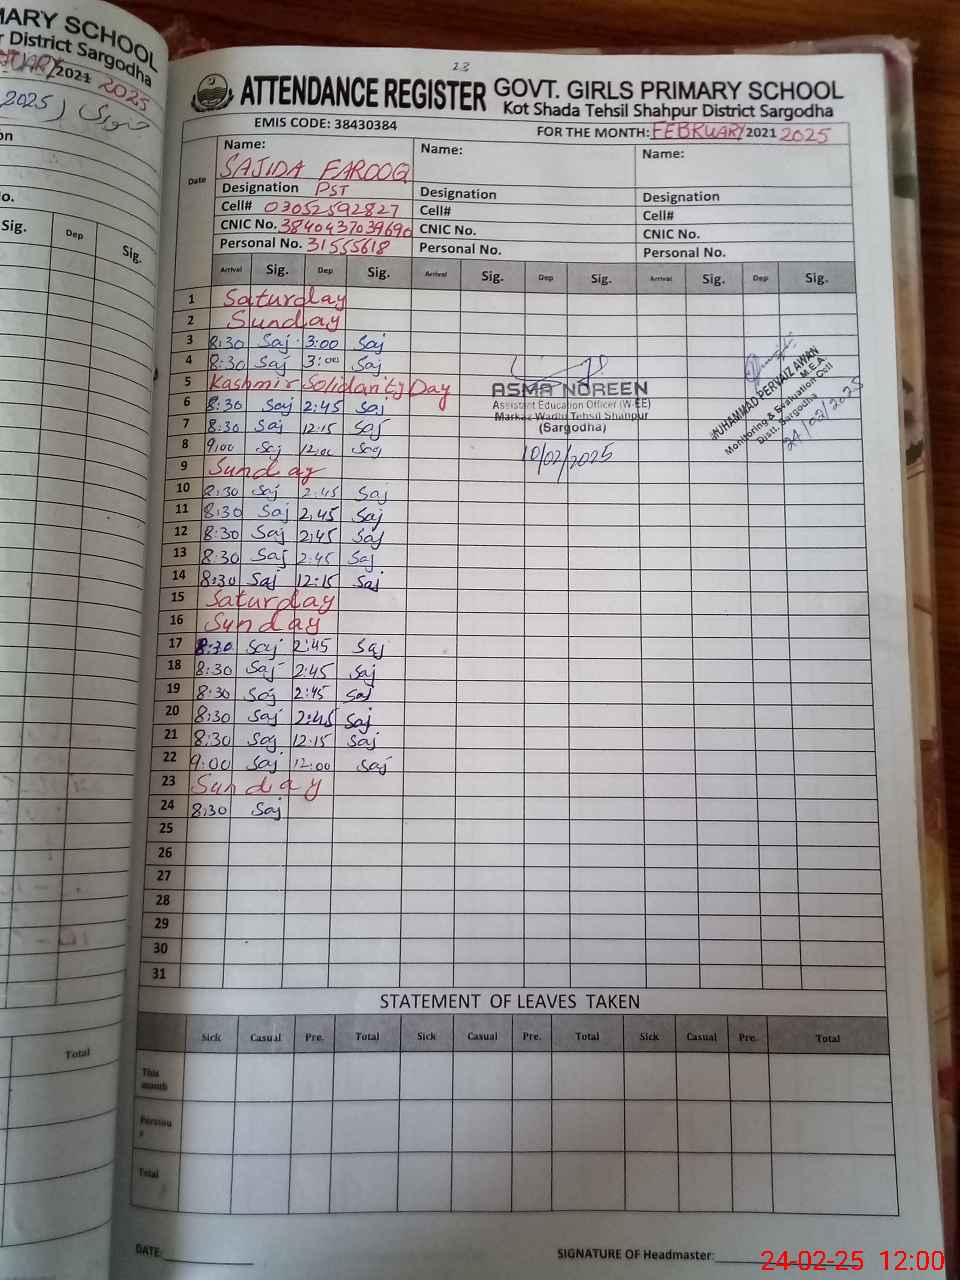 MARY SCHOOL
r District Sargodha
2021 2025
2025 جنوری
on
o.
Sig. Dep Sig.
Total
23
ATTENDANCE REGISTER GOVT. GIRLS PRIMARY SCHOOL
Kot Shada Tehsil Shahpur District Sargodha
EMIS CODE: 38430384 FOR THE MONTH: FEBRUARY 2021 2025
Date Name: Name: Name:
SAJIDA FAROOQ
Designation PST Designation Designation
Cell# 03052592827 Cell# Cell#
CNIC No. 3840437039690 CNIC No. CNIC No.
Personal No. 31555618 Personal No. Personal No.
Arrival Sig. Dep Sig. Arrival Sig. Dep Sig. Arrival Sig. Dep Sig.
1 Saturday
2 Sunday
3 8:30 Saj 3:00 Saj
4 8:30 Saj 3:00 Saj
5 Kashmir Solidarity Day
6 8:30 Saj 2:45 Saj
7 8:30 Saj 12:15 Saj
8 9:00 Saj 12:00 Saj
9 Sunday
10 8:30 Saj 2:45 Saj
11 8:30 Saj 2:45 Saj
12 8:30 Saj 2:45 Saj
13 8:30 Saj 2:45 Saj
14 8:30 Saj 12:15 Saj
15 Saturday
16 Sunday
17 8:30 Saj 2:45 Saj
18 8:30 Saj 2:45 Saj
19 8:30 Saj 2:45 Saj
20 8:30 Saj 2:45 Saj
21 8:30 Saj 12:15 Saj
22 9:00 Saj 12:00 Saj
23 Sunday
24 8:30 Saj
25
26
27
28
29
30
31
ASMA NOREEN
Assistant Education Officer (W-EE)
Markaz Wadhi Tehsil Shahpur
(Sargodha)
10/02/2025
MUHAMMAD PERVAIZ AWAN
M.E.A.
Monitoring & Evaluation Cell
Distt. Sargodha
24/02/2025
STATEMENT OF LEAVES TAKEN
Sick Casual Pre. Total Sick Casual Pre. Total Sick Casual Pre. Total
This month
Total
DATE: SIGNATURE OF Headmaster:
24-02-25 12:00